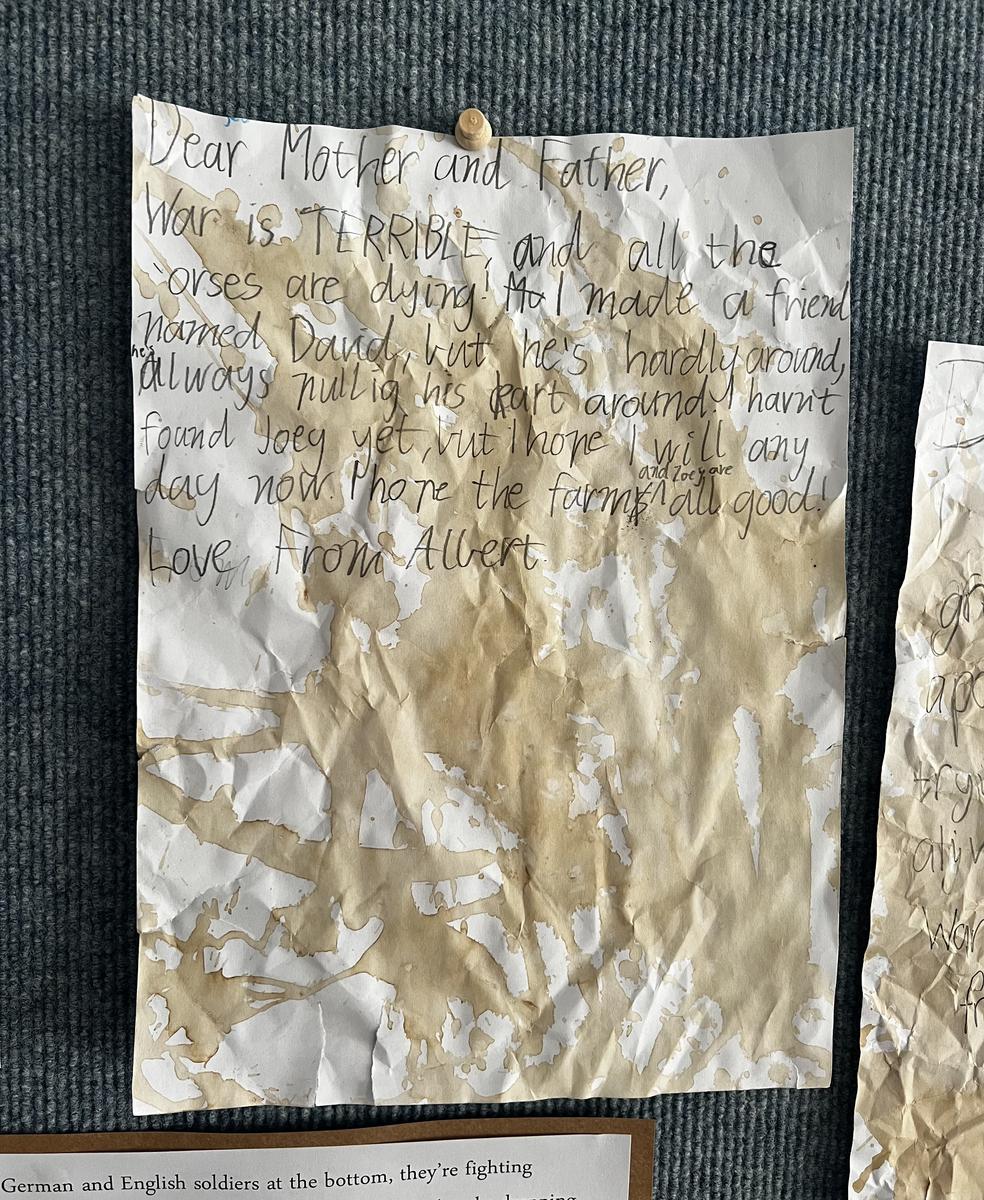 Dear Mother and Father,
War is TERRIBLE, and all the
'orses are dying! I made a friend
named David, but he's hardly around,
he's
always pullig his cart around! I havn't
found Joey yet, but I hope I will any
and Zoey are
day now. I hope the farm all good!
Love From Albert
gr
apo
try
aliv
war
fr
German and English soldiers at the bottom, they're fighting